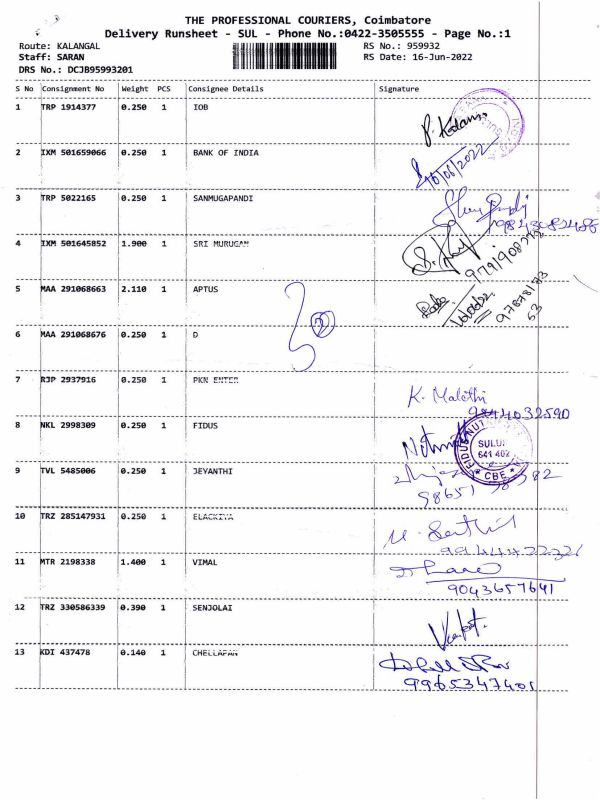 THE PROFESSIONAL COURIERS, Coimbatore
Delivery Runsheet - SUL - Phone No.:0422-3505555 - Page No.:1
Route: KALANGAL RS No.: 959932
Staff: SARAN RS Date: 16-Jun-2022
DRS No.: DCJB95993201
S No Consignment No Weight PCS Consignee Details Signature
1 TRP 1914377 0.250 1 IOB
2 IXM 501659066 0.250 1 BANK OF INDIA
16/06/2022
3 TRP 5022165 0.250 1 SANMUGAPANDI
4 IXM 501645852 1.900 1 SRI MURUGAN
5 MAA 291068663 2.110 1 APTUS
6 MAA 291068676 0.250 1 D
7 RJP 2937916 0.250 1 PKN ENTER
K. Malathi
8 NKL 2998309 0.250 1 FIDUS
SULUR
641 402
CBE
9 TVL 5485006 0.250 1 JEYANTHI
10 TRZ 285147931 0.250 1 ELACKIYA
11 MTR 2198338 1.400 1 VIMAL
9043657641
12 TRZ 330586339 0.390 1 SENJOLAI
13 KDI 437478 0.140 1 CHELLAPAN
9965347401